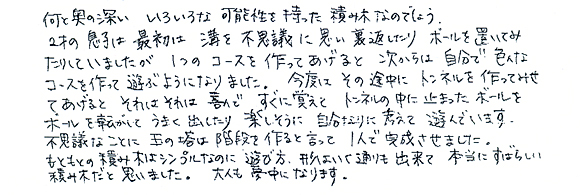 何と奥の深い いろいろな 可能性を持った積み木なのでしょう。
2才の息子は最初は 溝を不思議に思い裏返したり ボールを置いてみ
たりしていましたが 1つのコースを作ってあげると 次からは自分で色んな
コースを作って遊ぶようになりました。 今度は その途中に トンネルを作ってみせ
てあげると それはそれは 喜んで すぐに覚え トンネルの中に止まったボールを
ボールを転がして うまく出したり 楽しそうに 自分なりに考えて遊んでいます。
不思議なことに 玉の塔は階段を作ると言って 1人で完成させました。
もともとの積み木はシンプルなのに 遊び方、形はいく通りも出来て 本当にすばらしい
積み木だと思いました。 大人も夢中になります。